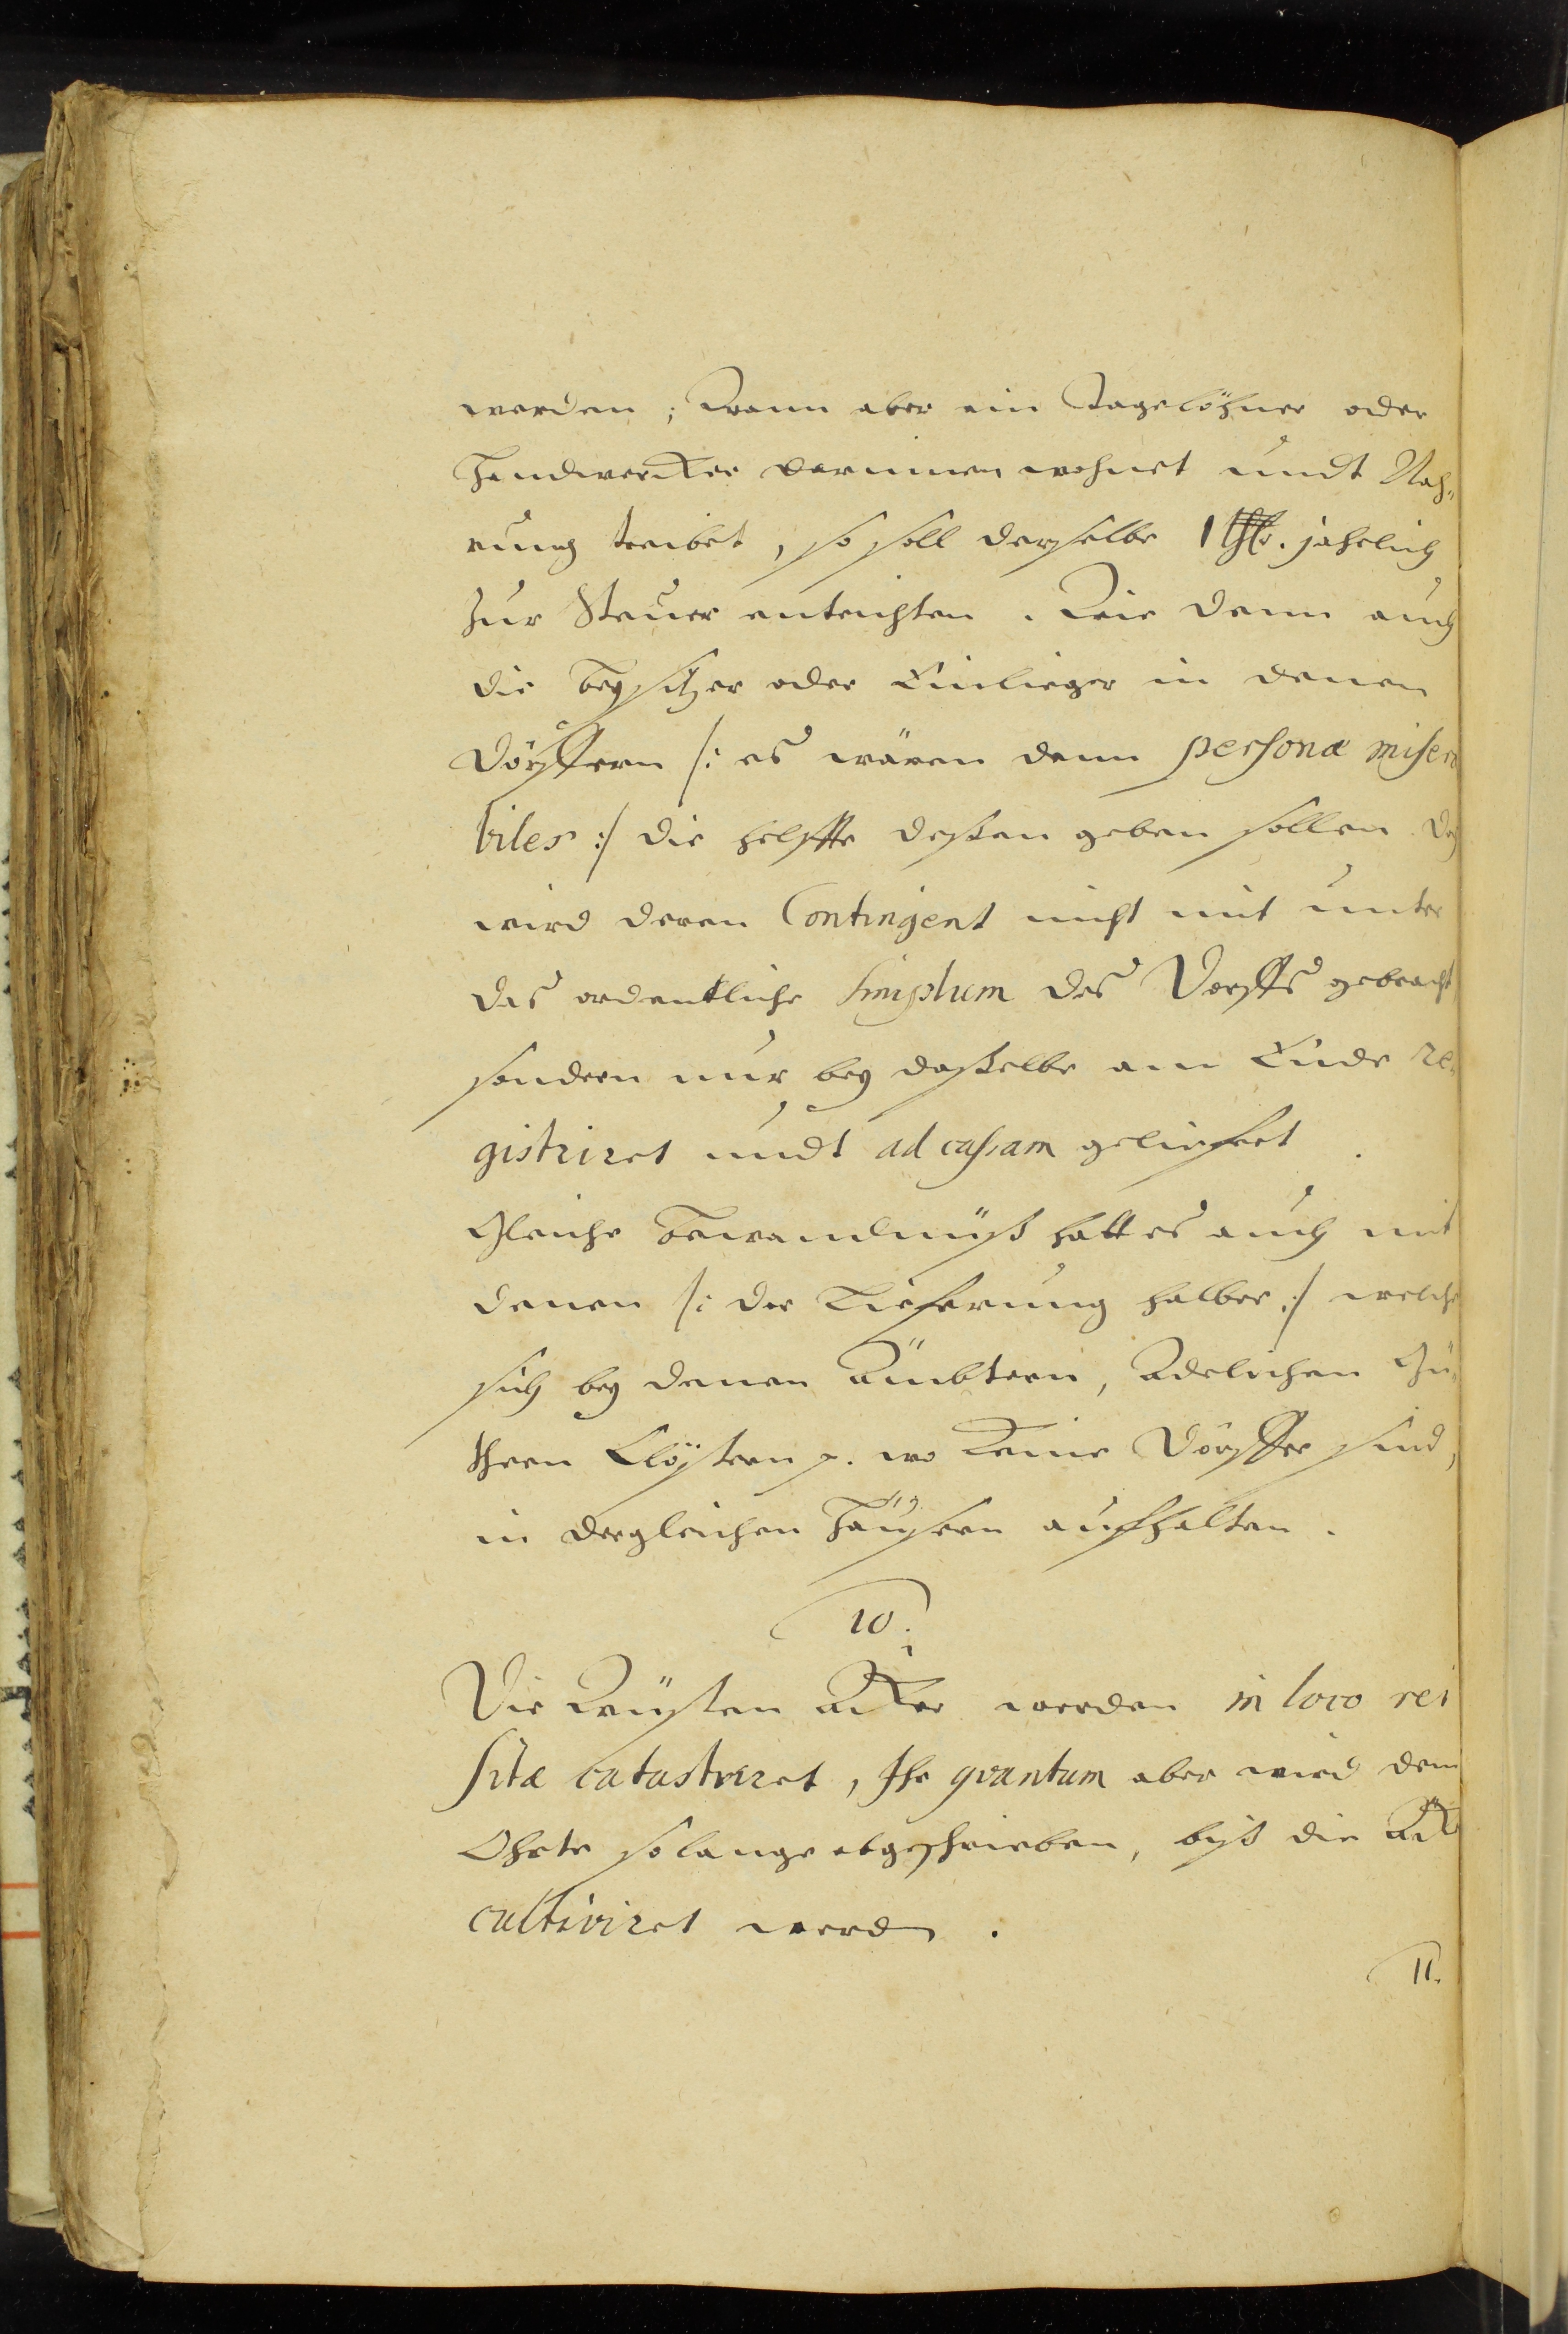 werden; Wann aber ein Tagelöhner oder
Handwercker darinnen wohnet undt Nah„
rung treibet, so soll derselbe 1 thlr. jahrlich
zur Steuer entrichten. Wie dann auch
die Beysitzer oder Einlieger in denen
Dörffern /: es wären denn personæ misera
biles :/ die helffte deßen geben sollen. doch
wird deren Contingent nicht mit unter
das ordentliche simplum des Dorffs gebracht
sondern nur bey daßelbe am Ende re„
gistriret undt ad cassam geliefert.
Gleiche Bewandnüß hatt es auch mit
denen /: der Lieferung halber :/ welche
sich bey denen Ämbtern, Adelichen Gü„
thern Clöstern p. wo keine Dörffer sind,
in dergleichen Häusern aufhalten.
10.
Die Wüsten Äcker werden in loco rei
sitæ catastriret, Ihr qvantum aber wird dem
Ohrte so lange abgeschrieben, biß die Äcker
cultiviret werden.
11.